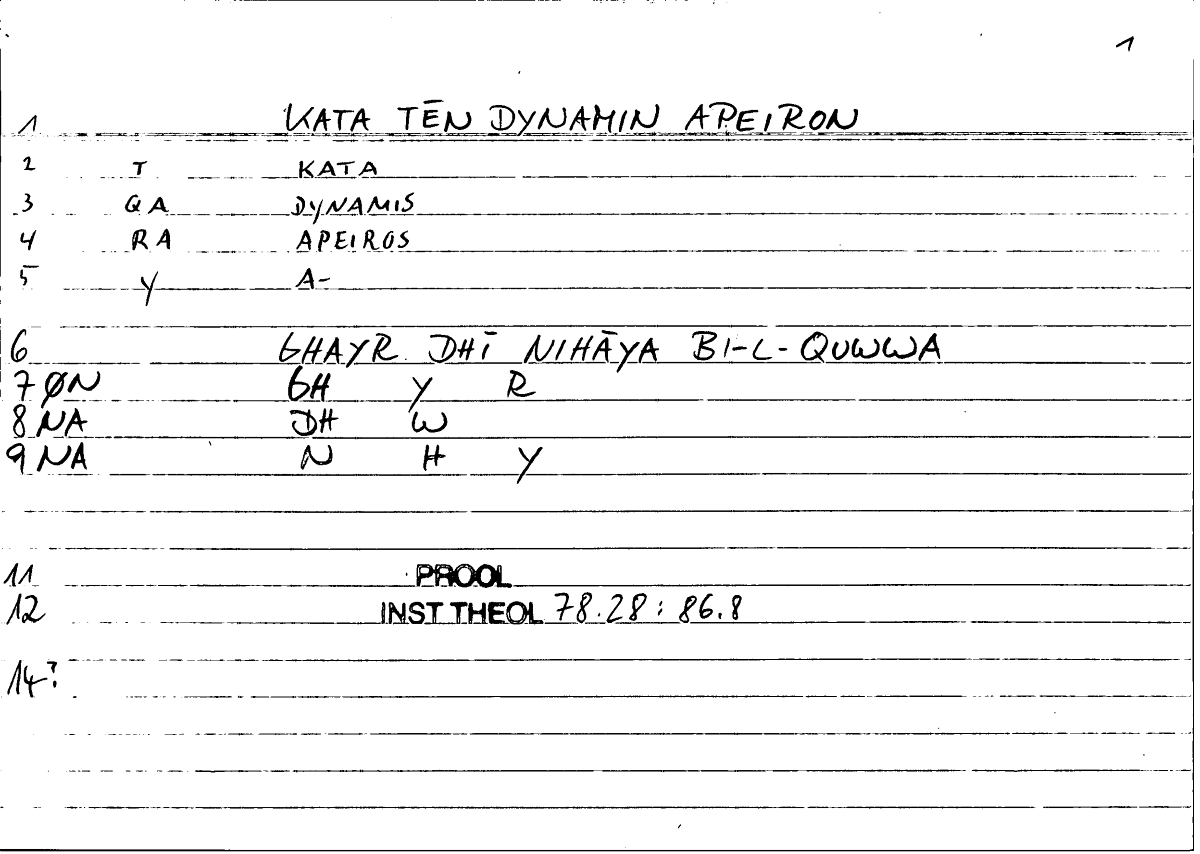 1
1 KATA TĒN DYNAMIN APEIRON
2 T KATA
3 QA DYNAMIS
4 RA APEIROS
5 Y A-
6 GHAYR DHĪ NIHĀYA BI-L-QUWWA
7 ØN GH Y R
8 NA DH W
9 NA N H Y
11 PROOL
12 INST THEOL 78.28: 86.8
14?